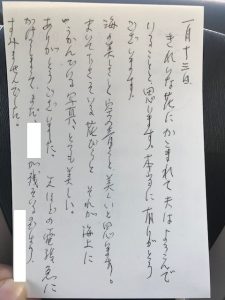 一月十三日
きれいな花にかこまれて夫はよろこんで
いることと思います。本当に有りがとう
ございました。
海の美しさと空の青さと美しいと思います。
まいてちっている花びらと それが海上に
うかんでいる写真、とても美しい。
ありがとうございました。 先ほどの電話 急に
かけまして、まだ が残っている
すみませんでした。